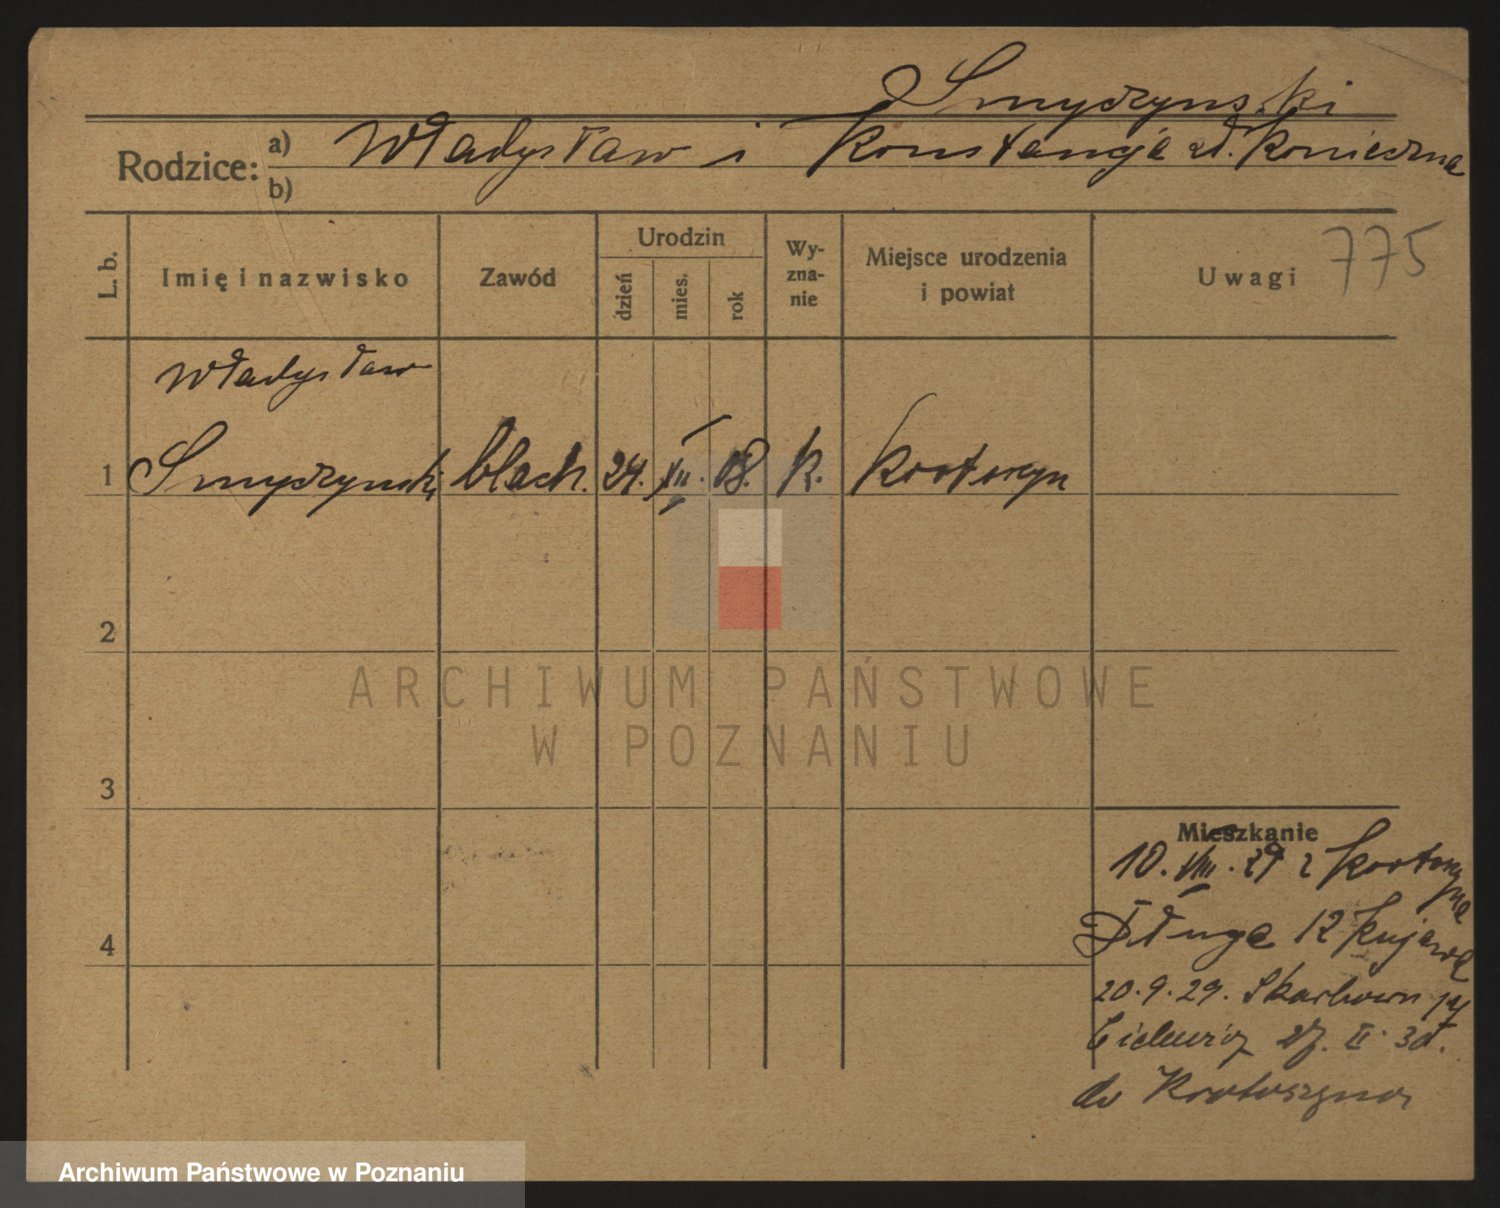 Smyczyński
Rodzice: a) Władysław i Konstancja zd. Konieczna
b)
L. b.
Imię i nazwisko
Zawód
Urodzin
dzień
mies.
rok
Wy-
zna-
nie
Miejsce urodzenia
i powiat
Uwagi
775
Władysław
1 Smyczyński blach. 24. XII. 08. k. Krotoszyn
2
3
4
Mieszkanie
10. VIII. 29 z Krotoszyna
Długa 12 Kujawa
20. 9. 29. Skarbowa 14
II. 30.
do Krotoszyna
ARCHIWUM PAŃSTWOWE
W POZNANIU
Archiwum Państwowe w Poznaniu